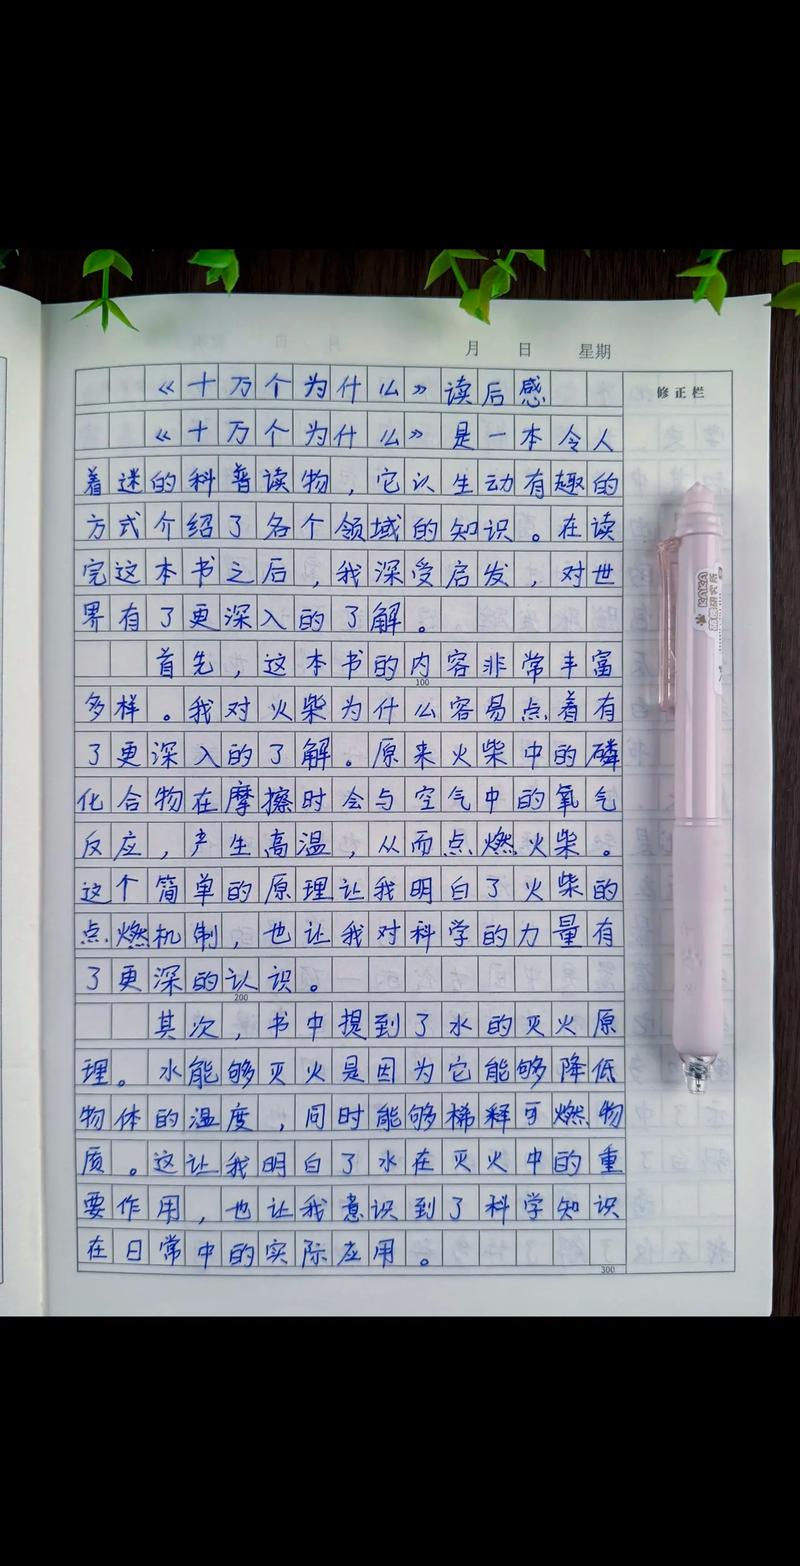 月 日 星期
修正栏
《十万个为什么》读后感
《十万个为什么》是一本令人
着迷的科普读物，它认生动有趣的
方式介绍了各个领域的知识。在读
完这本书之后，我深受启发，对世
界有了更深入的了解。
首先，这本书的内容非常丰富
100
多样。我对火柴为什么容易点着有
了更深入的了解。原来火柴中的磷
化合物在摩擦时会与空气中的氧气
反应，产生高温，从而点燃火柴。
这个简单的原理让我明白了火柴的
点燃机制，也让我对科学的力量有
了更深的认识。
200
其次，书中提到了水的灭火原
理。水能够灭火是因为它能够降低
物体的温度，同时能够稀释可燃物
质。这让我明白了水在灭火中的重
要作用，也让我意识到了科学知识
在日常中的实际应用。
300
KAKA